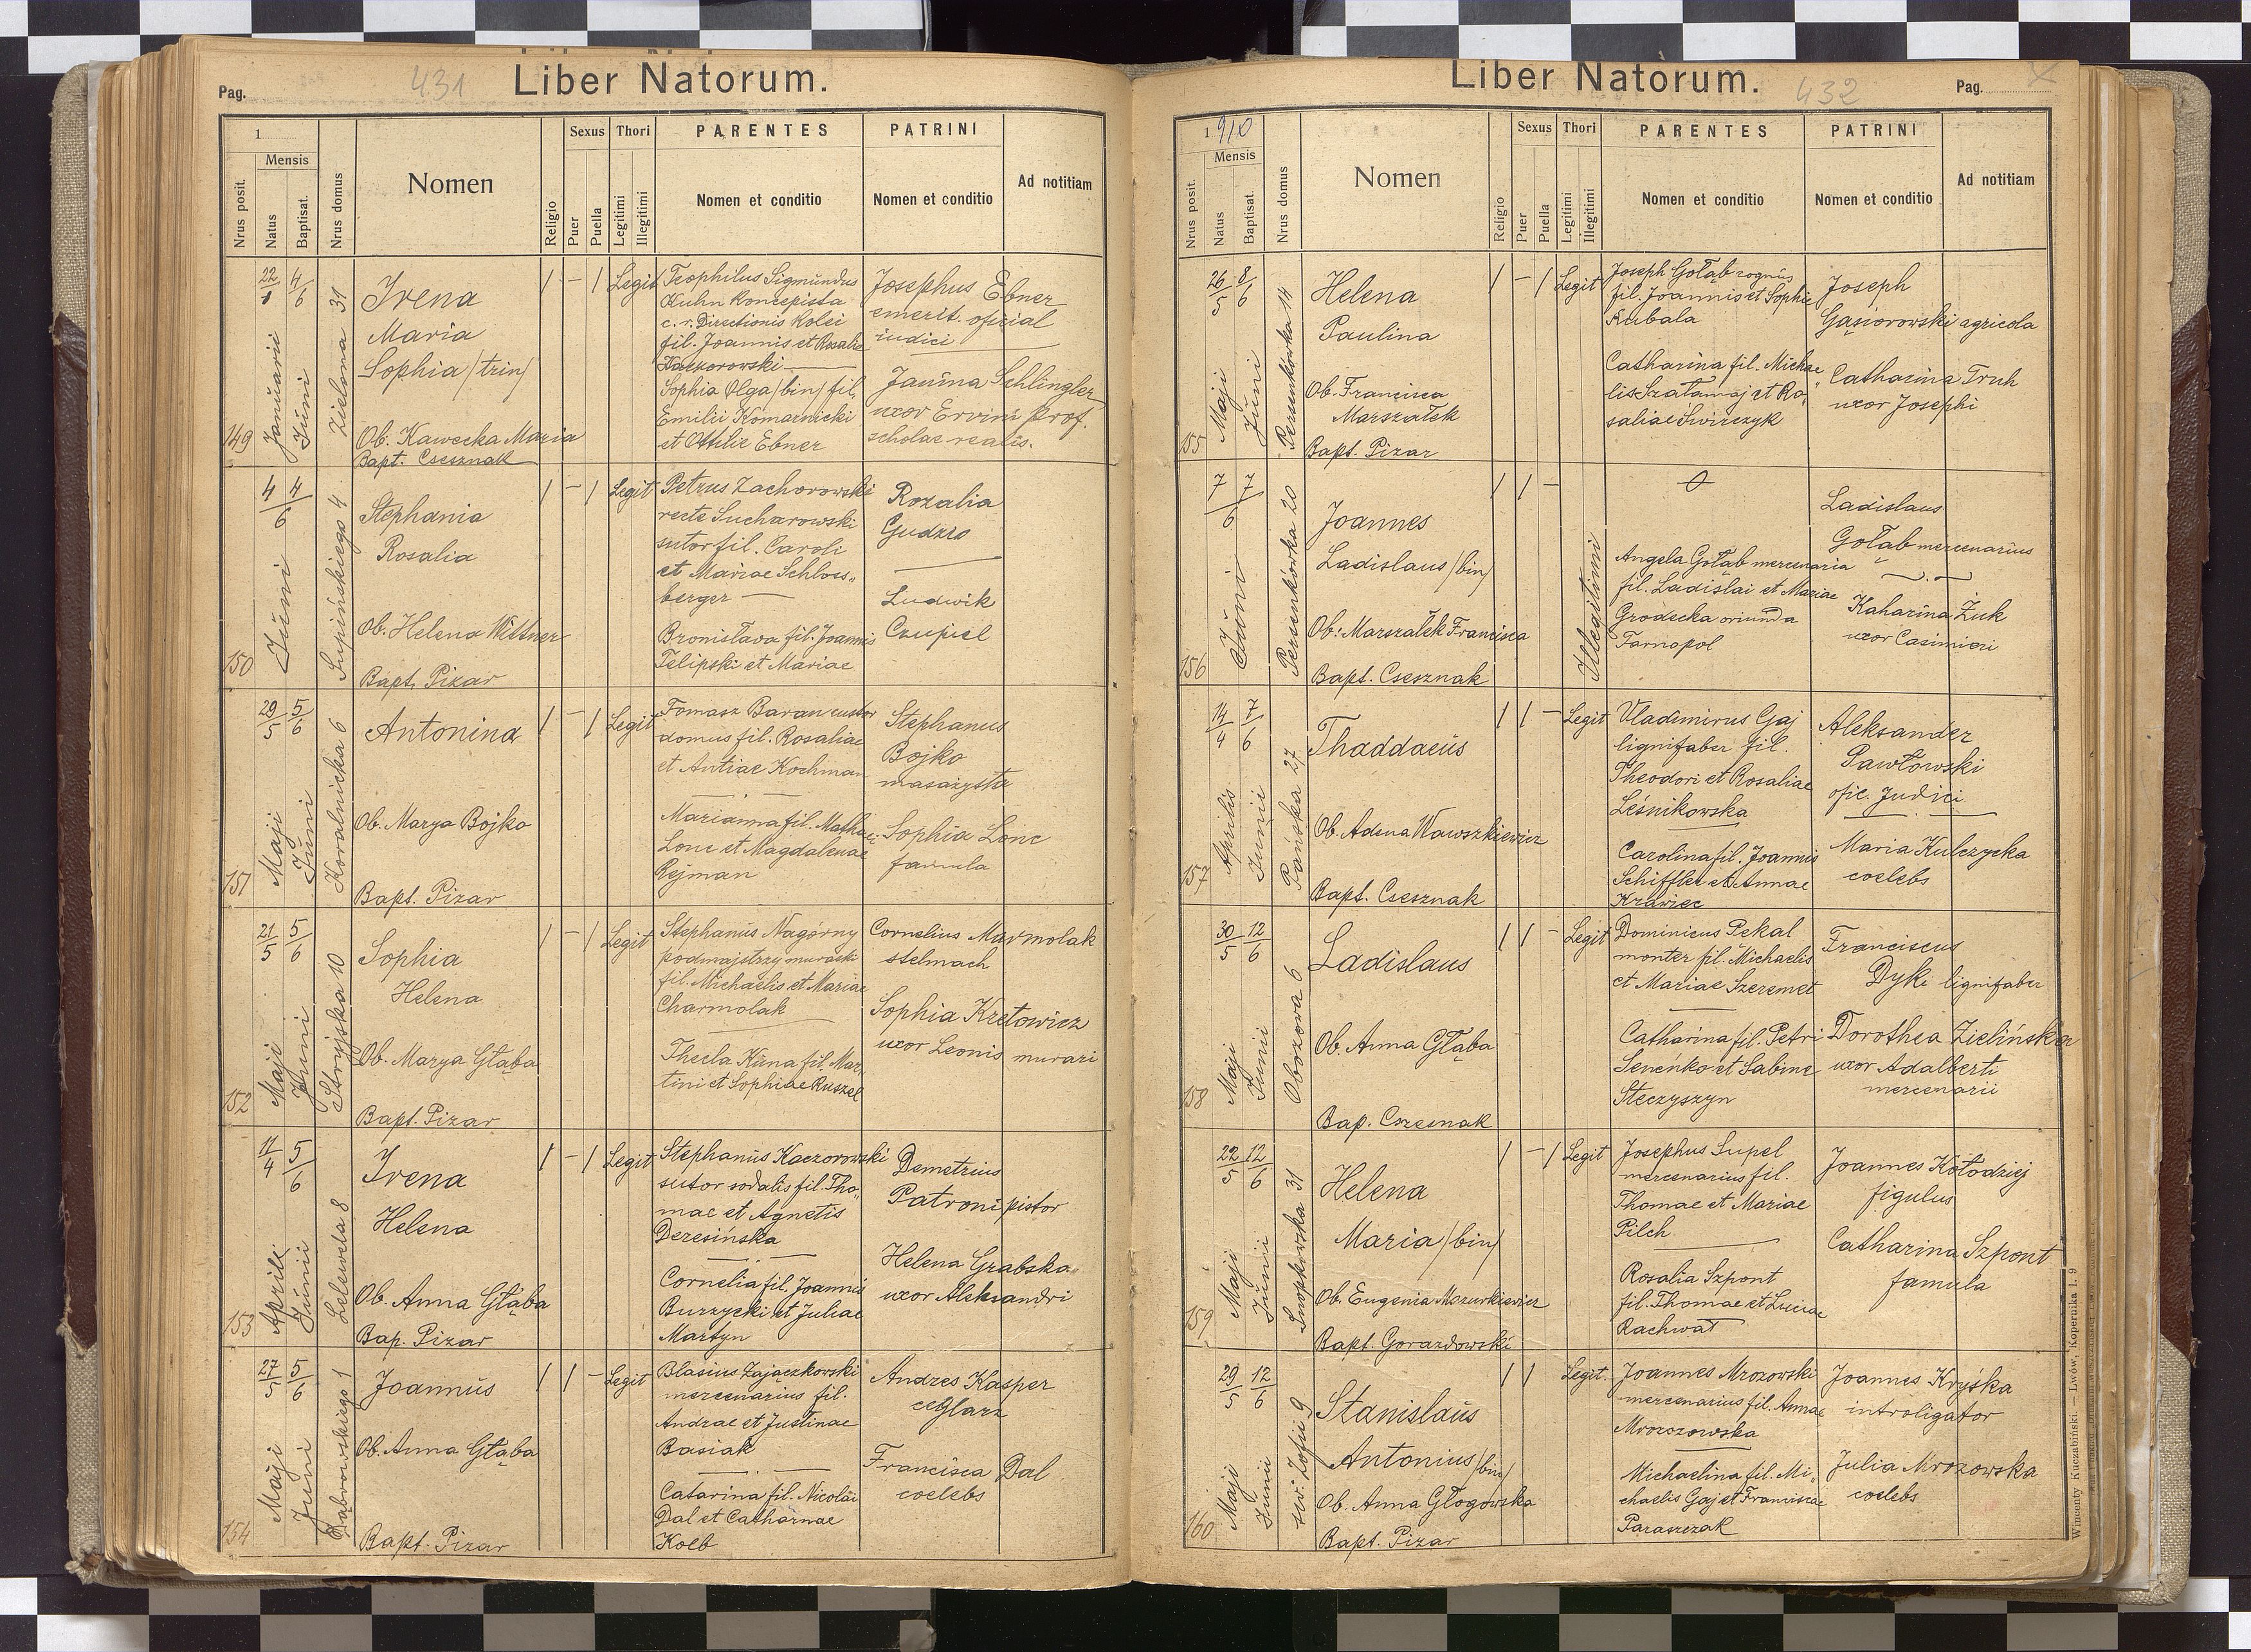 Pag.
431
Liber Natorum.
1
Mensis
Nrus posit.
Natus
Baptisat.
Nrus domus
Nomen
Religio
Sexus
Puer
Puella
Thori
Legitimi
Illegitimi
PARENTES
Nomen et conditio
PATRINI
Nomen et conditio
Ad notitiam
149
22/1 4/6
Januarii
Juni
Zielona 31
Irena
Maria
Sophia /trin/
Ob. Kawecka Maria
Bapt. Csesznak
1 - 1 Legit
Teophilus Sigmundus
Kuhn koncepista
c. r. Directionis Kolei
fil. Joannis et Rosalie
Kaczorowski
Sophia Olga /bin/ fil.
Emilii Komarnicki
et Othilie Ebner
Josephus Ebner
emerit. oficial
iudici
Janina Schlingler
uxor Ervini prof.
scholae realis.
150
4 4/6
Juni
Supińskiego 4
Stephania
Rosalia
Ob. Helena Wittner
Bapt. Pizar
1 - 1 Legit
Petrus Zachorowski
recte Sucharowski
sutor fil. Caroli
et Mariae Schloss-
berger
Bronisława fil. Joannis
Telipski et Mariae
Rozalia
Gudzio
Ludwik
Czupiel
151
29/5 5/6
Maji
Juni
Kowalnicka 6
Antonina
Ob. Marya Bojko
Bapt. Pizar
1 - 1 Legit
Tomasz Baran custor
domus fil. Rosaliae
et Antiae Kochman
Marianna fil. Mathaei
Lonc et Magdalenae
Rejman
Stephanus
Bojko
masażysta
Sophia Lonc
famula
152
21/5 5/6
Maji
Juni
Stryjska 10
Sophia
Helena
Ob. Marya Głąba
Bapt. Pizar
1 - 1 Legit
Stephanus Nagórny
podmajstrzy muraski
fil. Michaelis et Mariae
Charmolak
Thecla Kuna fil. Mar-
tini et Sophiae Ruszel
Cornelius Marmolak
stelmach
Sophia Kretowicz
uxor Leonis murari
153
11/4 5/6
Aprili.
Junii
Lelewela 8
Irena
Helena
Ob. Anna Głąba
Bap. Pizar
1 - 1 Legit
Stephanus Kaczorowski
sutor sodalis fil. Tho-
mae et Agnetis
Deresińska
Cornelia fil. Joannis
Burzycki et Juliae
Martyn
Demetrius
Patroni pistor
Helena Grabska
uxor Aleksandri
154
27/5 5/6
Maji
Juni
Dąbrowskiego 1
Joannus
Ob. Anna Głąba
Bapt. Pizar
1 1 - Legit
Blasius Zajączkowski
mercenarius fil.
Andrae et Justinae
Basiak
Catarina fil. Nicolai
Dal et Catharinae
Kolb
Andres Kasper
ceglarz
Francisca Dal
coelebs
Liber Natorum.
432
Pag.
1910
Mensis
Nrus posit.
Natus
Baptisat.
Nrus domus
Nomen
Religio
Sexus
Puer
Puella
Thori
Legitimi
Illegitimi
PARENTES
Nomen et conditio
PATRINI
Nomen et conditio
Ad notitiam
155
26/5 8/6
Maji
Juni
Persenkówka 14
Helena
Paulina
Ob. Francisca
Marszałek
Bapt. Pizar
1 - 1 Legit
Joseph Gołąb
fil. Joannis et Sophie
Kubala
Catharina fil. Michae-
lis Szatamaj et Ro-
saliae Świrczyk
Joseph
Gąsiorowski agricola
Catharina Truh
uxor Josephi
156
7 7/6
Juni
Persenkówka 20
Joannes
Ladislaus /bin/
Ob: Marszałek Francisca
Bapt. Csesznak
1 1 -
Illegitimi
Angela Gołąb mercenaria
fil. Ladislai et Mariae
Grodecka oriunda
Tarnopol
Ladislaus
Gołąb mercenarius
Kaharina Żuk
uxor Casimieri
157
14/4 7/6
Aprilis
Junii
Pańska 27
Thaddaeus
Ob. Adena Wawszkiewicz
Bapt. Csesznak
1 1 - Legit
Vladimirus Gaj
lignifaber fil.
Theodori et Rosaliae
Leśnikowska
Carolina fil. Joannis
Schiffler et Annae
Krawiec
Aleksander
Pawłowski
ofic. Judici
Maria Kulczycka
coelebs
158
30/5 12/6
Maji
Junii
Obozowa 6
Ladislaus
Ob. Anna Głąba
Bap. Czesnak
1 1 - Legit
Dominicus Pekal
monter fil. Michaelis
et Mariae Szeremet
Catharina fil. Petri
Senenko et Sabine
Steczyszyn
Franciscus
Dyki lignifaber
Dorothea Zielińska
uxor Adalberti
mercenarii
159
22/5 12/6
Maji
Junii
Snopkowska 31
Helena
Maria /bin/
Ob. Eugenia Mazurkiewicz
Bapt. Gorazdowski
1 - 1 Legit
Josephus Supel
mercenarius fil.
Thomae et Mariae
Pilch
Rosalia Szpont
fil. Thomae et Luciae
Rachwał
Joannes Kołodziej
figulus
Catharina Szpont
famula
160
29/5 12/6
Maji
Junii
św. Zofii 9
Stanislaus
Antonius /bin/
Ob. Anna Głogowska
Bapt. Pizar
1 1 Legit.
Joannes Mrozowski
mercenarius fil. Annae
Mrozczowska
Michaelina fil. Mi-
chaelis Gaj et Franciscae
Paraszczak
Joannes Kryśka
introligator
Julia Mrozowska
coelebs
Wincenty Kuczabiński. — Lwów, Kopernika l. 9